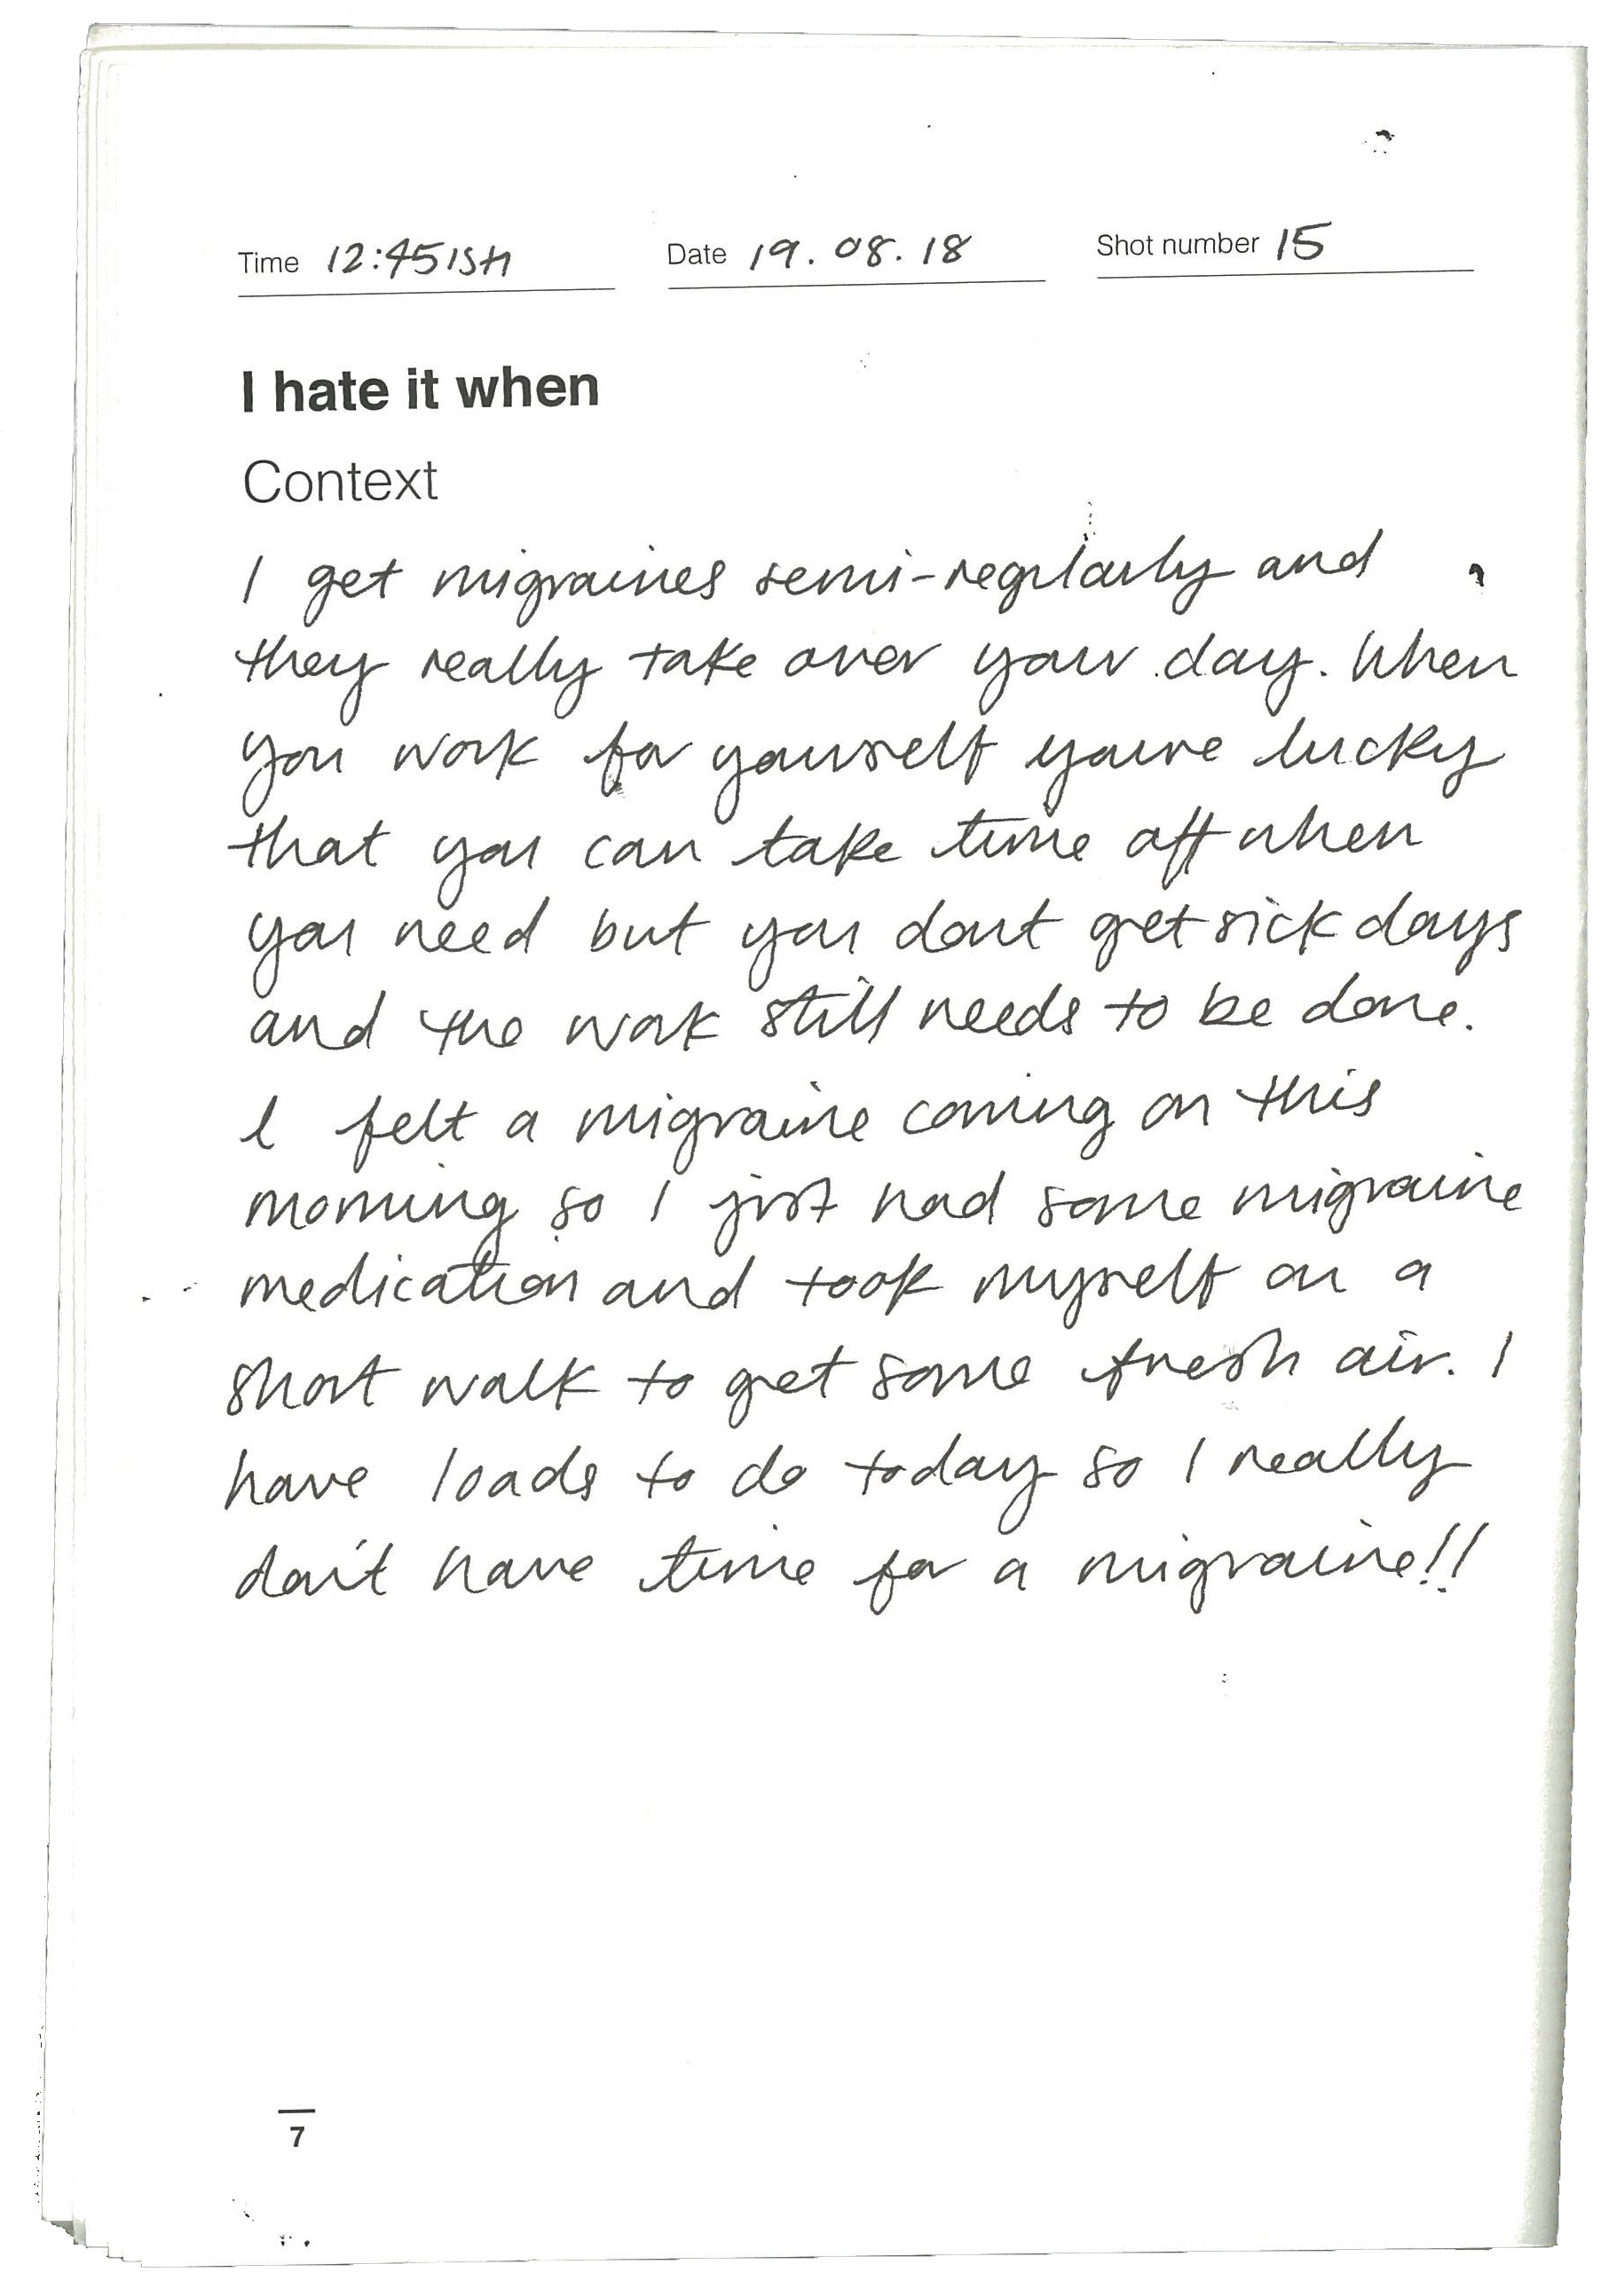 Time 12:45ISH Date 19.08.18 Shot number 15
I hate it when
Context
I get migraines semi-regularly and
they really take over your day. When
you work for yourself youre lucky
that you can take time off when
you need but you dont get sick days
and the work still needs to be done.
I felt a migraine coming on this
morning so I just had some migraine
medication and took myself on a
short walk to get some fresh air. I
have loads to do today so I really
don't have time for a migraine!!
7